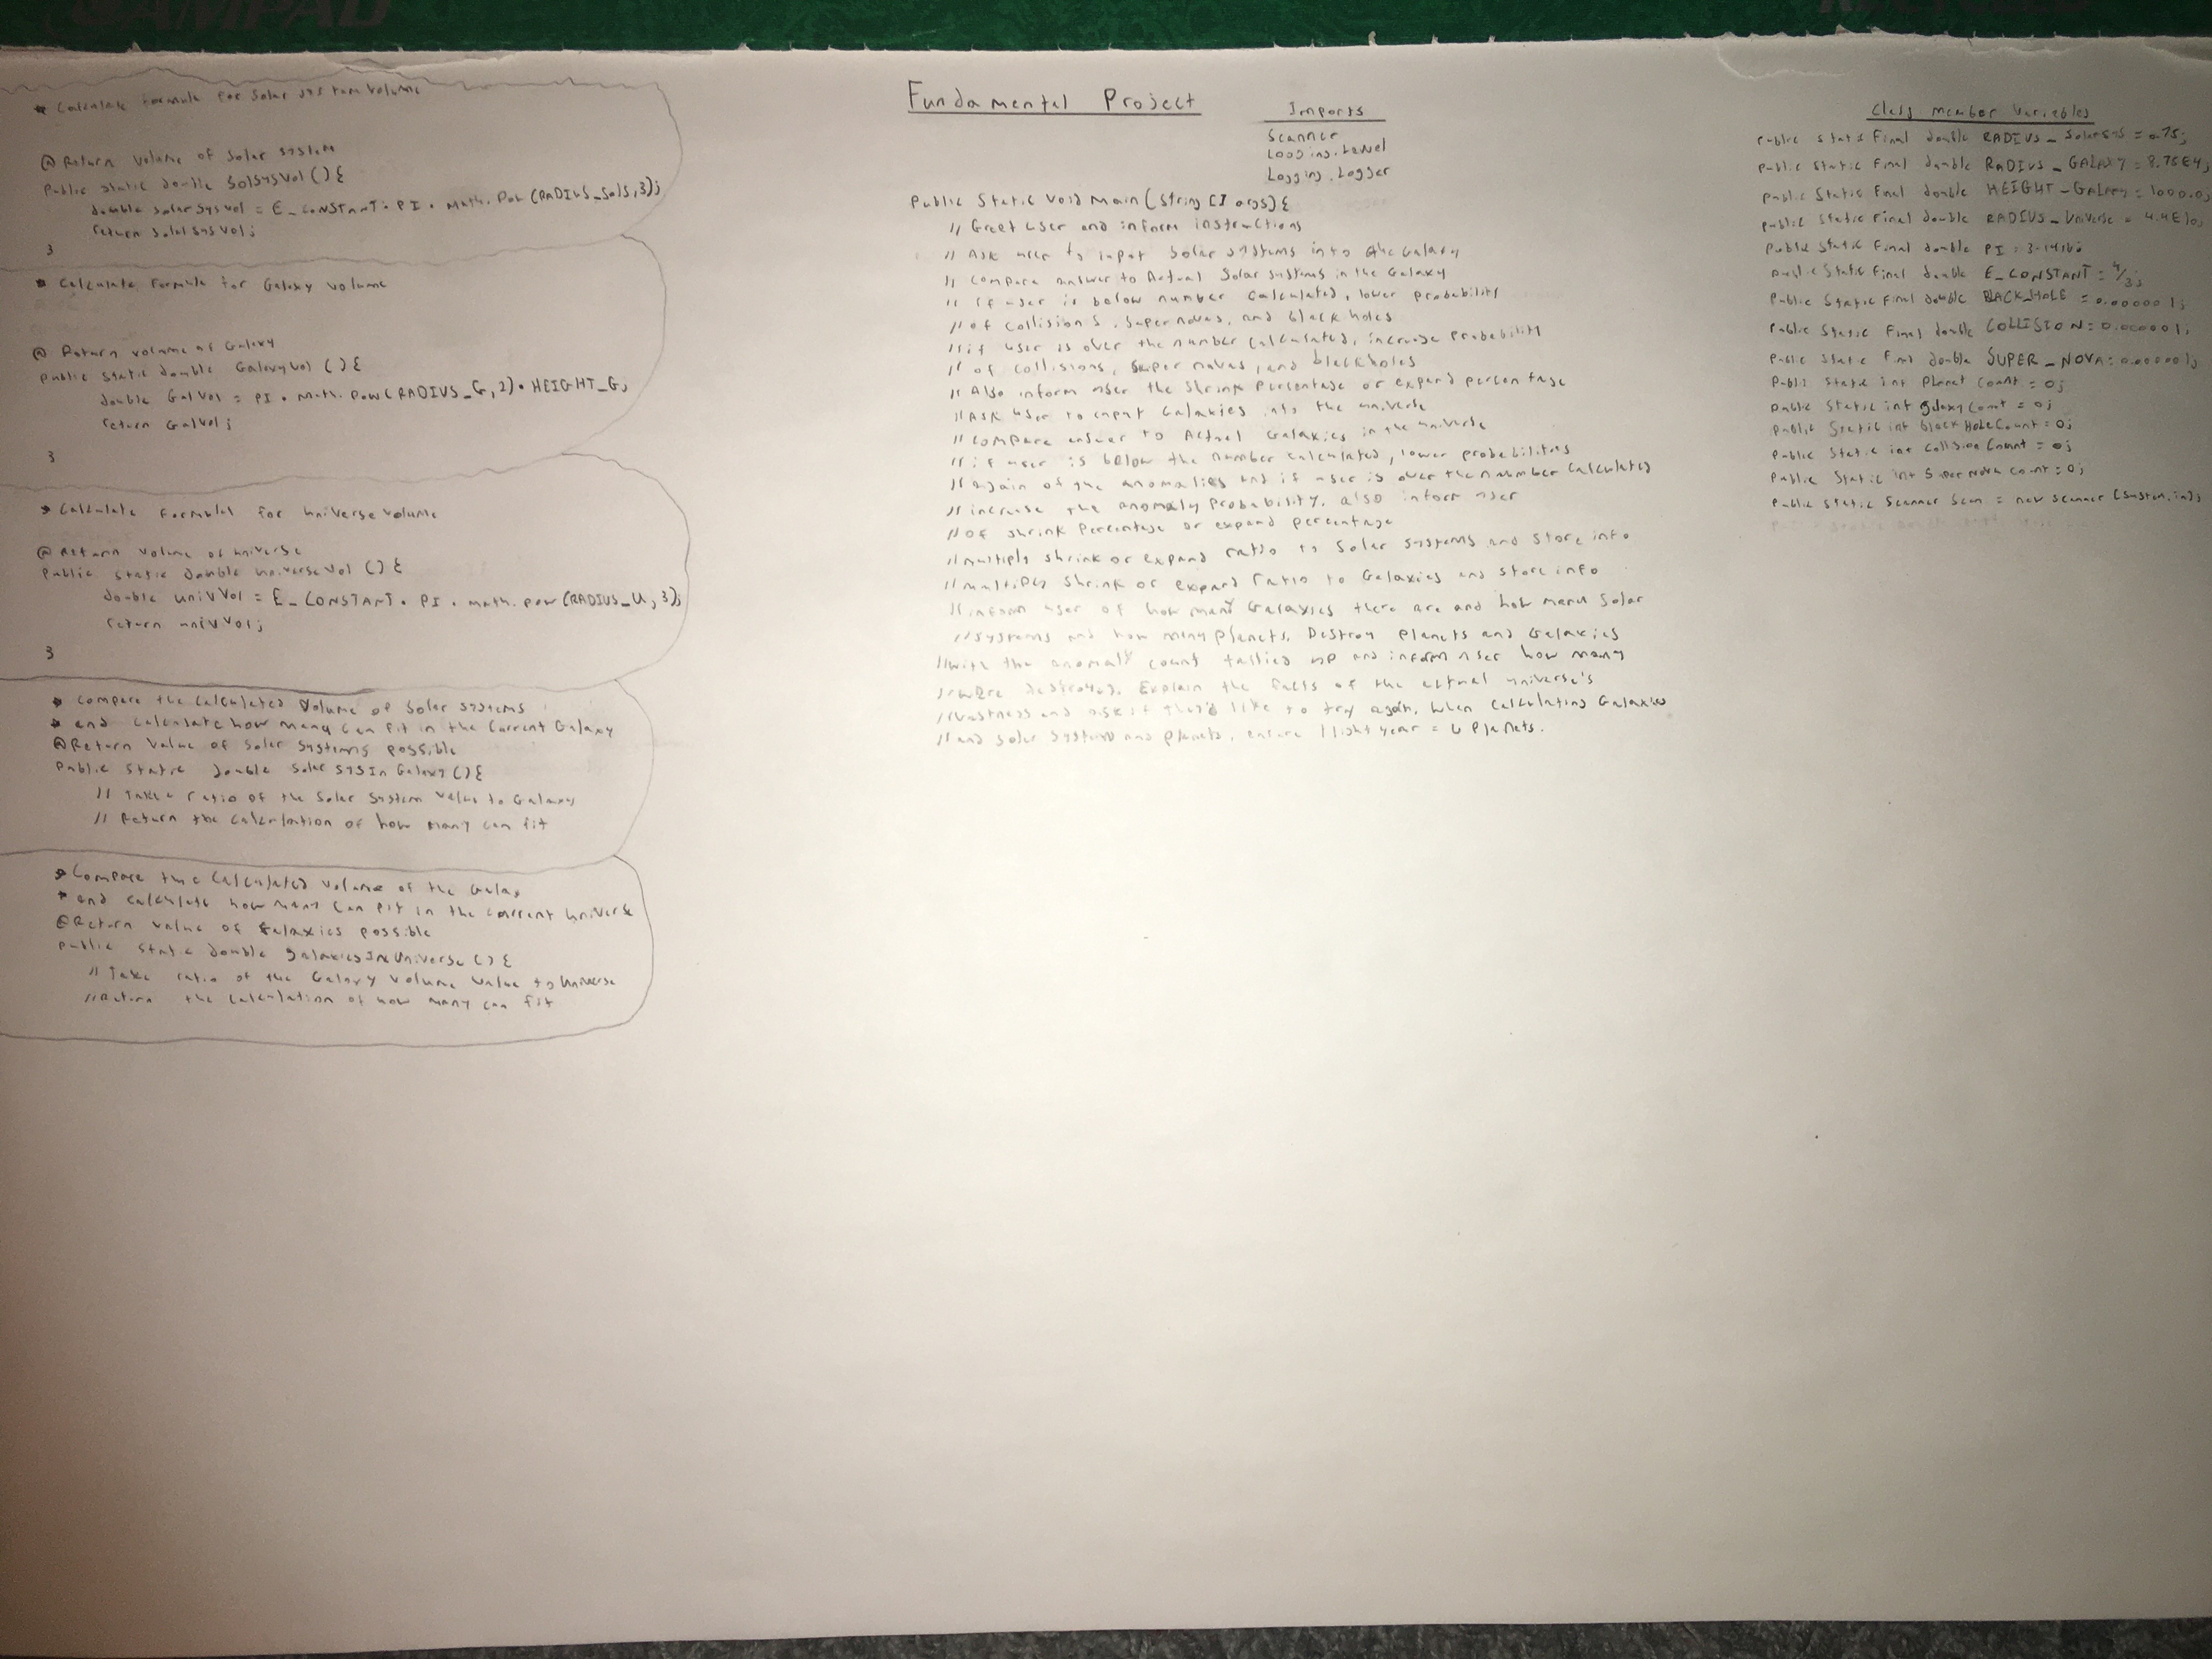 AMPAD
RECYCLED
* Calculate formula for Solar system Volume
@Return Volume of Solar system
Public static double SolSysVol () {
double solarSysVol = E_CONSTANT • PI • Math.Pow (RADIUS_SolS,3);
return SolarSysVol;
}
* Calculate formula for Galaxy Volume
@ Return volume of Galaxy
Public static double GalaxyVol () {
double GalVol = PI • Math.Pow(RADIUS_G,2) • HEIGHT_G;
return GalVol;
}
* Calculate formula for universe volume
@Return volume of universe
Public static double universeVol () {
double univVol = E_CONSTANT • PI • math.pow(RADIUS_U,3);
return univVol;
}
* Compare the Calculated Volume of Solar systems
* and calculate how many can fit in the Current Galaxy
@Return Value of Solar Systems possible
Public static double SolarSysIn Galaxy () {
// Take a ratio of the Solar System Value to Galaxy
// Return the calculation of how many can fit
* Compare the Calculated volume of the
* and calculate how many can fit in the current universe
@Return value of Galaxies possible
public static double galaxiesInUniverse () {
// Take ratio of the Galaxy volume value to Universe
//Return the calculation of how many can fit
Fundamental Project
Imports
Scanner
Logging.Level
Logging.Logger
Public Static Void Main (String [] args) {
// Greet user and inform instructions
// Ask user to input Solar systems into the Galaxy
// Compare answer to Actual Solar systems in the Galaxy
// if user is below number Calculated, lower probability
// of collisions, supernovas, and black holes
// if user is over the number calculated, increase probability
// of collisions, super novas, and blackholes
// Also inform user the Shrink percentage or expand percentage
//Ask user to input Galaxies into the universe
//Compare answer to Actual Galaxies in the universe
// if user is below the number calculated, lower probabilities
//again of the anomalies and if user is over the number Calculated
//increase the anomaly probability. also inform user
//of shrink Percentage or expand percentage
//multiply shrink or expand ratio to Solar systems and store info
//multiply shrink or expand ratio to Galaxies and store info
//inform user of how many Galaxies there are and how many Solar
//systems and how many planets. Destroy planets and Galaxies
//with the anomaly count tallied up and inform user how many
//were destroyed. Explain the facts of the actual universe's
//vastness and ask if they'd like to try again. When calculating Galaxies
//and solar systems and planets, ensure 1 light year = 6 Planets.
Class member Variables
Public static final double RADIUS_SolarSys = 0.75;
Public Static Final double RADIUS_GALAXY = 8.75E4;
Public Static Final double HEIGHT_GALAXY = 1000.0;
Public Static Final double RADIUS_Universe = 4.4E10;
Public Static Final double PI = 3.1416;
Public Static Final double E_CONSTANT = 4/3;
Public Static Final double BLACK_HOLE = 0.000001;
Public Static Final double COLLISION = 0.000001;
Public Static Final double SUPER_NOVA = 0.000001;
Public Static int Planet Count = 0;
Public Static int galaxy Count = 0;
Public Static int block HoleCount = 0;
Public Static int Collision Count = 0;
Public Static int SuperNova Count = 0;
Public Static Scanner Scan = new Scanner (System.in);